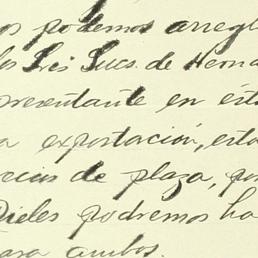 os podemos arregl
los Srs Sucs. de Herna
presentante en est
a exportación, esta
ecios de plaza, por
Pieles podremos ha
para ambos.